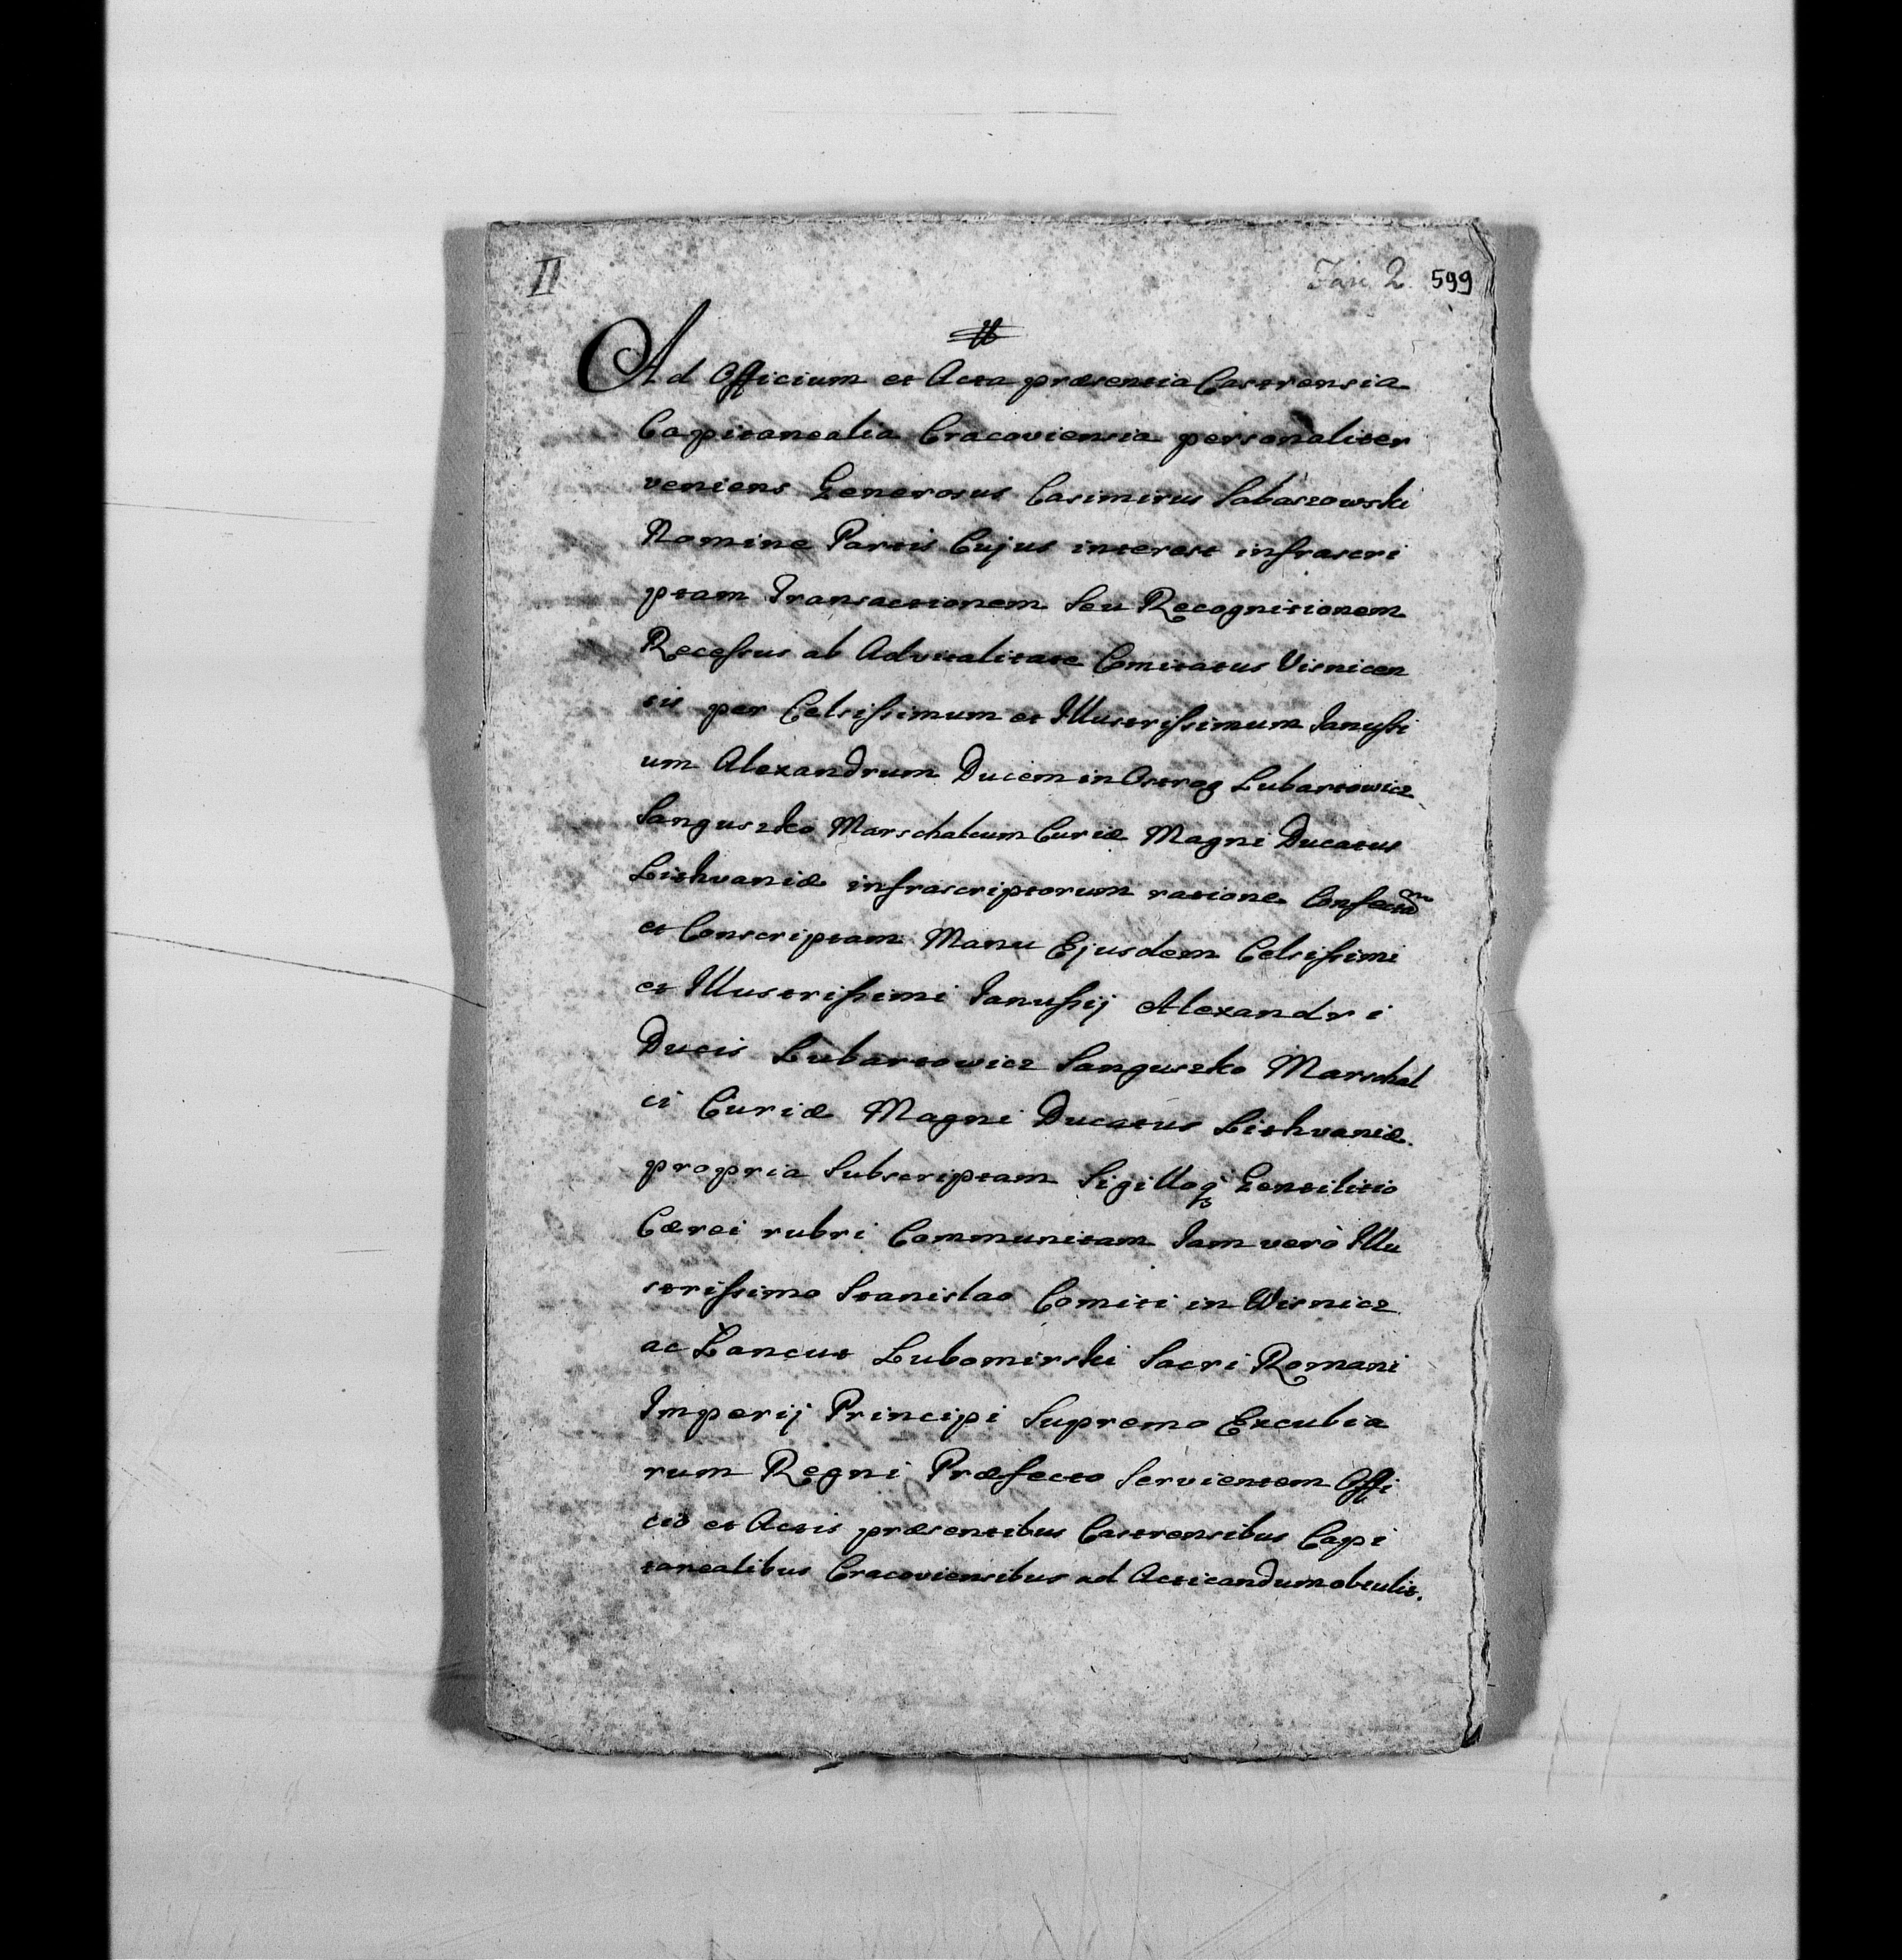 II
Fasc 2. 599
Ad Officium et Acta præsentia Castrensia
Capitanealia Cracoviensia personaliter
veniens Generosus Casimirus Sabaszowski
Nomine Partis Cujus interest infrascri
ptam Transactionem Seu Recognitionem
Recessus ab Advitalitate Comitatus Visnicen
sis per Celsissimum et Illustrissimum Janussi
um Alexandrum Ducem in Ostrog Lubartowicz
Sanguszko Marschalcum Curiæ Magni Ducatus
Lithvaniæ infrascriptorum ratione Confectam
et Conscriptam Manu Ejusdem Celsissimi
et Illustrissimi Janussij Alexandri
Ducis Lubartowicz Sanguszko Marschal
ci Curiæ Magni Ducatus Lithvaniæ.
propria Subscriptam Sigilloq; Gentilitio
Cærei rubri Communitam Jam verò Illu
strissimo Stanislao Comiti in Wisnicz
ac Łancut Lubomirski Sacri Romani
Imperij Principi Supremo Excubia
rum Regni Præfecto Servientem Offi
cio et Actis præsentibus Castrensibus Capi
tanealibus Cracoviensibus ad Acticandum obtulit.